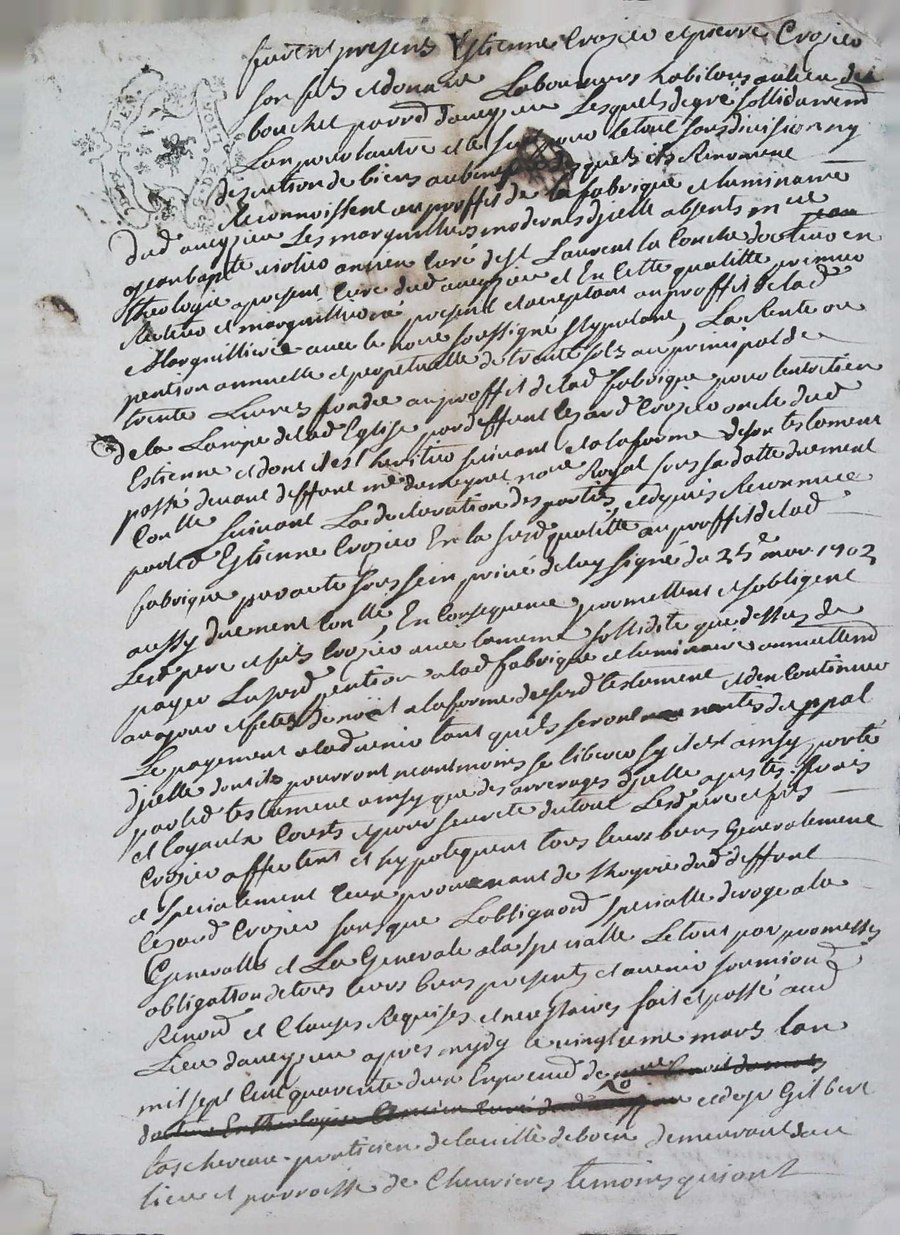 furent presents Estienne Crozier et pierre Crozier
son fils et donataire Laboureurs habitans au lieu de
bouchet parr. d'aveyzieu Lesquels de gré sollidairement
L'un pour l'autre et le seul pour le tout sans division ny
discution de biens au benef desquels ils Renoncent
Reconnoissent au proffit de la fabrique et luminaire
dud aveyzieu Les marguilliers modernes d'jcelle absents mre
jean bapte ancien curé de st Laurent la Conche docteur en
theologie a present Curé dud aveyzieu et En Cette qualitté premier
Recteur et marguillier present et acceptant au proffit de lad
Marguillierie avec le nore soussigné stypulant, La Rente ou
pention annuelle et perpetuelle de trente sols au principal de
trente Livres fondée au proffit de lad fabrique pour l'entretien
de la Lampe de lad Eglise par deffunt lezard Crozier oncle dud
Estienne et dont il est heritier suivant et a la forme de son testament
passé devant deffunt me nore Royal sous sa datte duement
Conllé Suivant La declaration des parties, et depuis Reconnue
par led Estienne Crozier En la susd qualitté au proffit de lad
fabrique par acte sous sein privé de luy signé du 25e mars 1702
aussy duement Conllé En Consequence promettent et s'obligent
Lesd pere et fils Crozier avec la meme sollidité que dessus de
payer La susd pention a lad fabrique et luminaire annuellemt
au jour et fete de noel a la forme du susd testament et d'en Continuer
Le payement a l'advenir tant qu'ils seront nantis du ppal
d'jcelle dont ils pourront neantmoins se liberer s'il est ainsy porté
par led testament ainsy que des arrerages d'jcelle a peines frais
et loyaulx Couts et pour seureté du tout Lesd pere et fils
Crozier affectent et hypotequent tous leurs biens Generalement
et specialement Ceux provenant de l'hoyrie dud deffunt
lezard Crozier sans que L'obligaon specialle deroge a la
Generalle et La Generale a la specialle Le tout par promesses
obligation de tous leurs biens presents et avenir soumions
Renons et Clauses Requises et necessaires fait et passé aud
Lieu d'aveyzieu apres mydy le vingtieme mars l'an
mil sept Cent quarante deux En presence de
et de sr Gilbert
tachereau praticien de la ville de boen demeurant au
lieu et parroisse de Chevrieres temoins qui ont